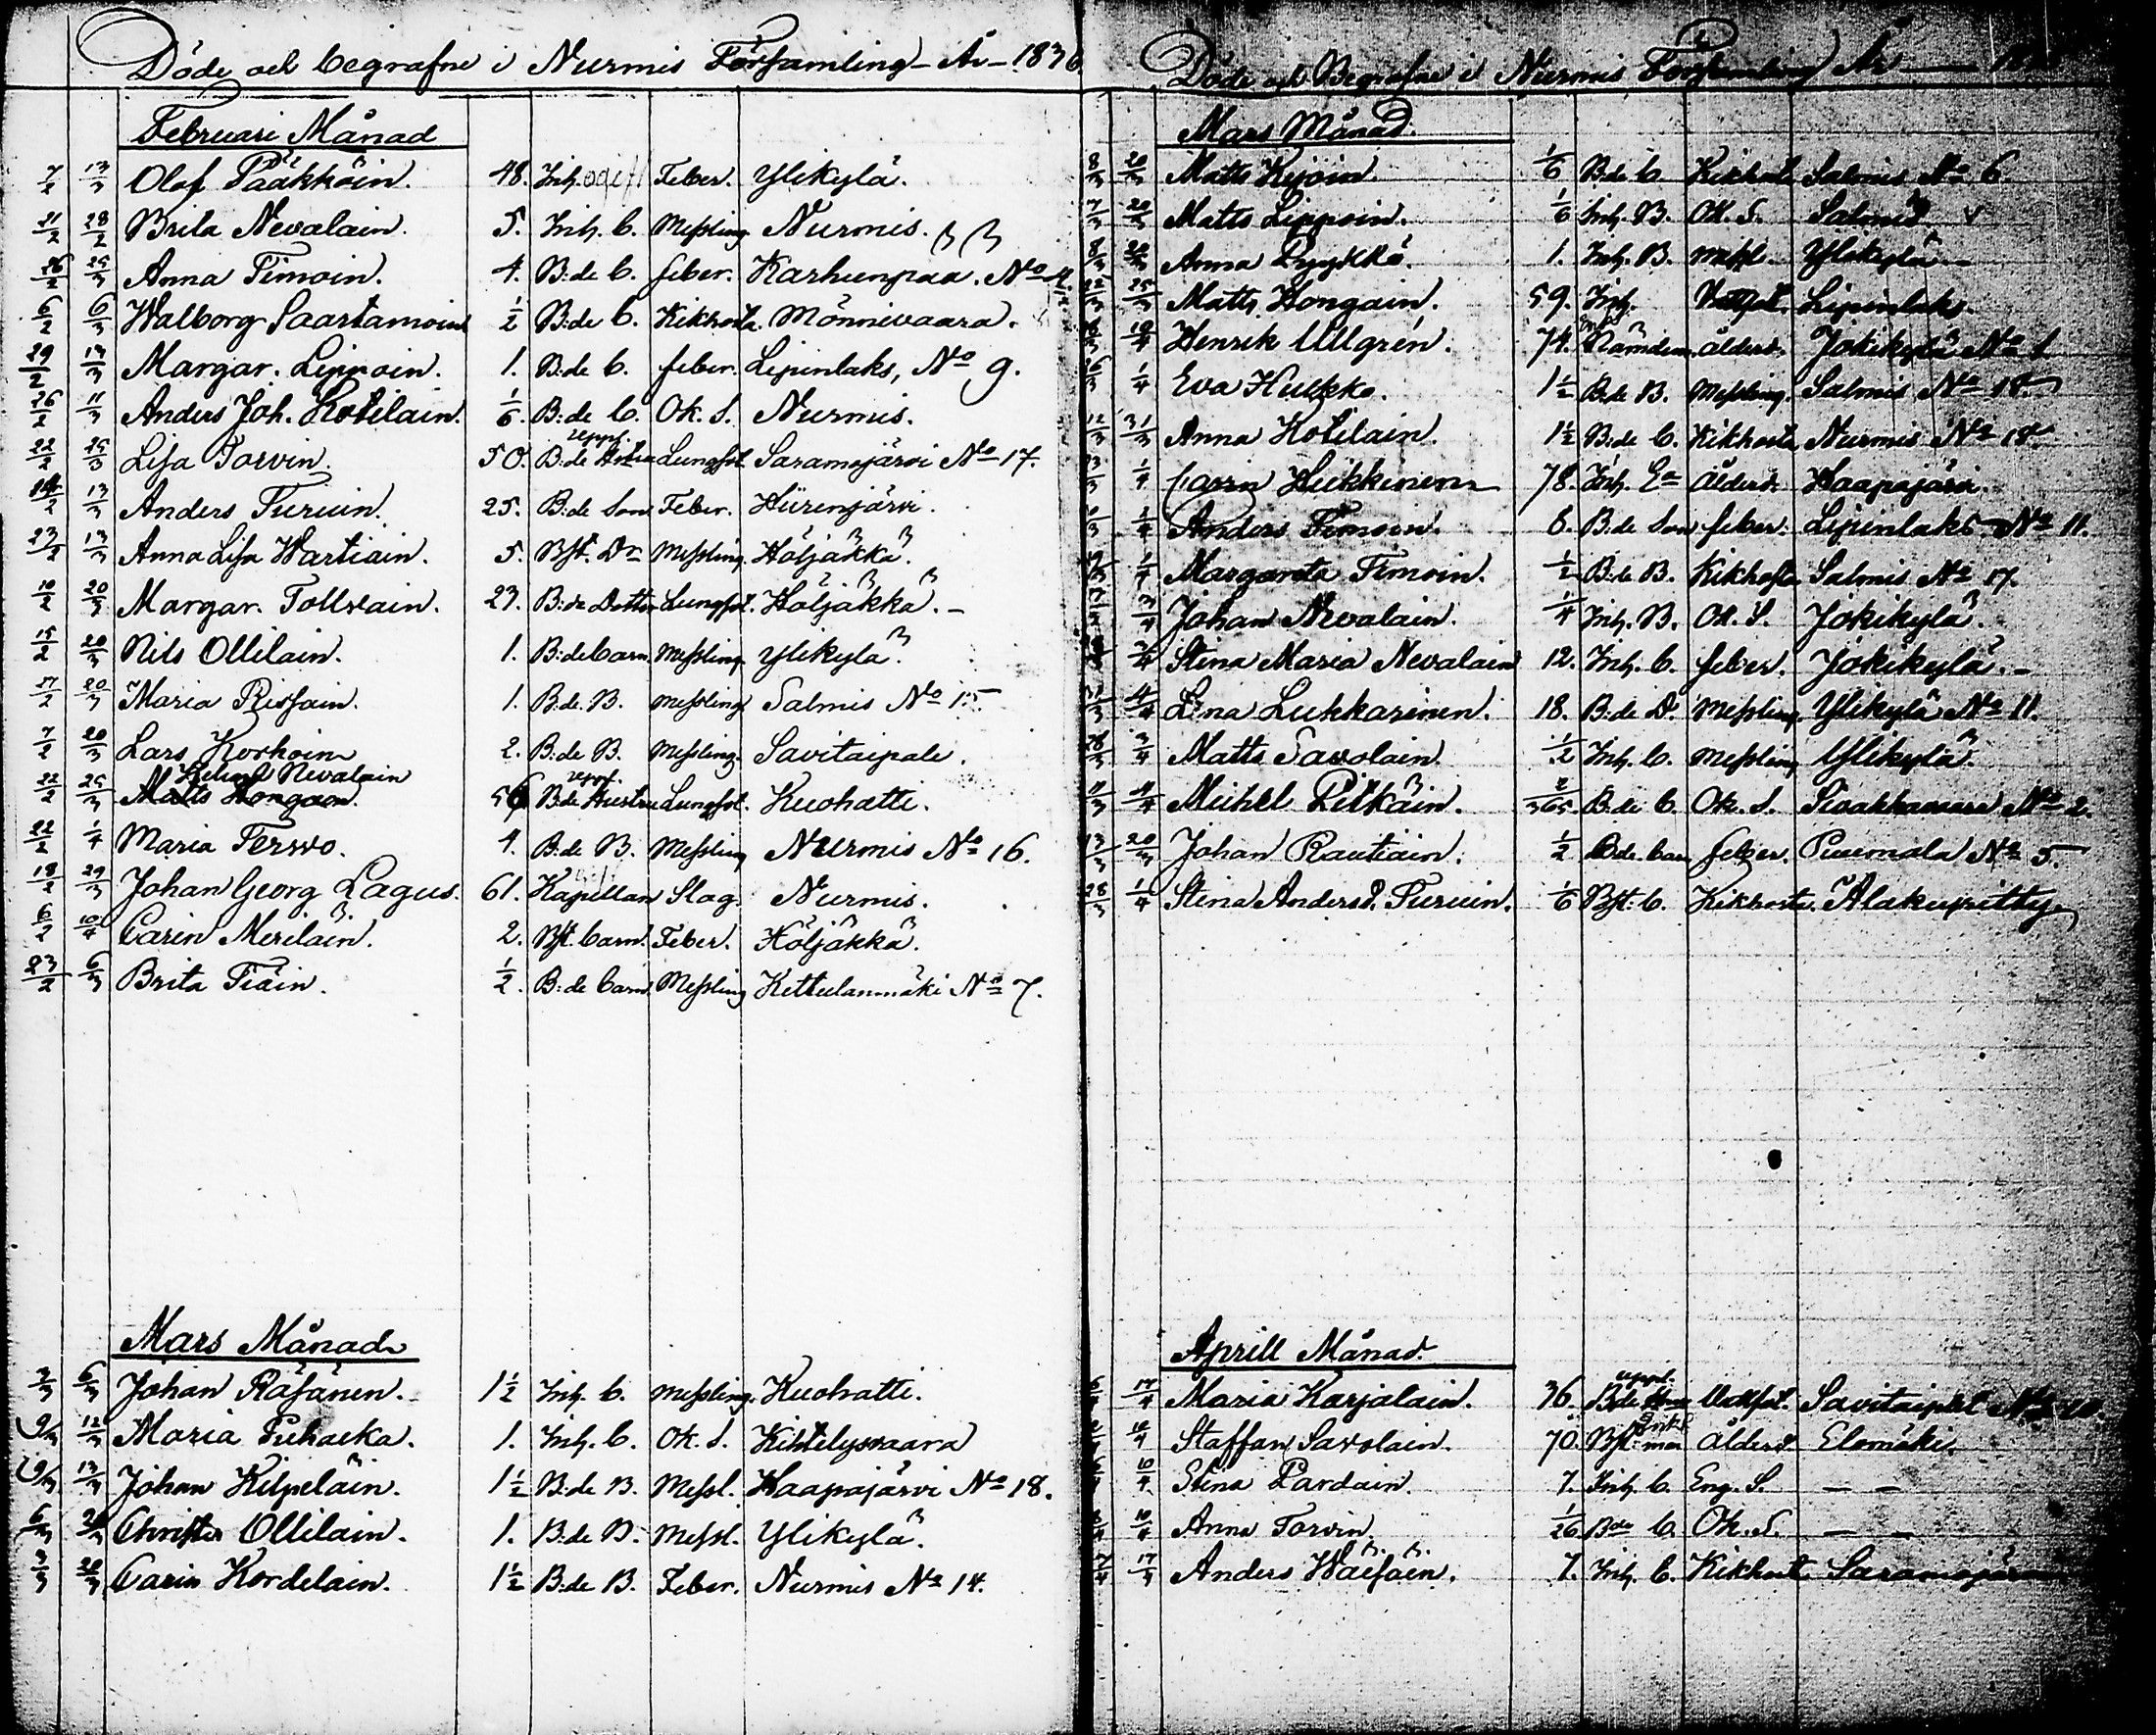 Döde och begrafne i Nurmis Församling - År - 1836
Februari Månad
7/2 13/3 Olof Pääkköin. 48. Inh. ogift Feber. Ylikylä.
21/2 28/2 Brita Nevalain. 5. Inh. b. Messling Nurmis.
26/2 25/3 Anna Timoin. 4. B:de b. feber. Karhunpää. No 4
6/2 6/3 Walborg Saastamoin 1/2 B:de b. Kikhosta. Mönnivaara.
29/2 13/3 Margar. Lippoin. 1. B:de b. feber. Lipinlaks, No 9.
26/2 11/3 Anders Joh. Kotilain. 1/6. B:de b. Ok. S. Nurmis.
22/2 25/3 Lisa Torvin. 50. B:de Hustru Lungsot. Saramojärvi No 17.
14/2 13/3 Anders Turuin. 25. B:de Son Feber. Hiirenjärvi.
23/2 13/3 Anna Lisa Wartiain. 5. Bst. Dr Messling Höljäkkä.
10/2 20/3 Margar. Tollvain. 23. B:de Dotter Lungsot. Höljäkkä. -
15/2 20/3 Nils Ollilain. 1. B:de barn. Messling. Ylikylä.
17/2 20/3 Maria Rissain. 1. B:de. B. Messling Salmis No 15.
7/2 20/3 Lars Korhoin 2. B:de B. Messling. Savitaipale.
Nevalain
22/2 25/3 Matts Hongain. 56 B:de Hustru Lungsot. Kuohatti.
22/2 1/4 Maria Tervo. 4. B:de B. Messling Nurmis No 16.
18/2 29/3 Johan Georg Lagus. 61. Kapellan Slag. Nurmis.
6/2 10/4 Carin Meriläin. 2. Bst. barn. Feber. Höljäkkä.
23/2 6/3 Brita Tiäin. 1/2. B:de barn. Messling Kettulanmäki No 7.
Mars Månad
3/3 6/3 Johan Räsänen. 1 1/2 Inh. b. Messling. Kuohatti.
9/3 12/3 Maria Puhakka. 1. Inh. b. Ok. S. Kihtelysvaara
9/3 13/3 Johan Kilpeläin. 1 1/2 B:de B. Messl. Haapajärvi No 18.
6/3 20/3 Christer Ollilain. 1. B:de B. Messl. Ylikylä.
3/3 20/3 Carin Kordelain. 1 1/2 B:de B. Feber. Nurmis No 14.
Döde och Begrafne i Nurmis Församling År
Mars Månad.
8/3 20/3 Matts Kejoin. 1/6 B:de b. Kikhosta Salmis No 6
7/3 20/3 Matts Lippoin. 1/6 Inh. B. Ok. S. Salmis
8/3 20/3 Anna Pyykkö. 1. Inh. B. Messl. Ylikylä -
25/3 Matts Hongain. 59. Inh. Lipinlaks.
10/4 Henrik Ullgrén. 74. ålderd. Jokikylä No 1
1/4 Eva Hukka. 1 1/2 B:de B. Messling. Salmis No 18.
12/3 31/3 Anna Kotilain. 1 1/2 B:de b. Kikhosta Nurmis No 18
1/4 Carin Heikkinen 78. Inh. Ea ålderd. Haapajärvi.
1/4 Anders Timoin. 8. B:de Son feber. Lipinlaks No 11.
1/4 Margareta Timoin. 1/2 B:de B. Kikhosta Salmis No 17.
3/4 Johan Nevalain. 1/4 Inh. B. Ok. S. Jokikylä.
3/4 Stina Maria Nevalain 12. Inh. b. feber. Jokikylä. -
4/4 Lena Lukkarinen. 18. B:de D. Messling. Ylikylä No 11.
28/3 3/4 Matts Savolain. 1/2 Inh. b. Messling Ylikylä.
11/3 4/4 Michel Pitkäin. 2/365. B:de b. Ok. S. Sivakkavaara No 2.
13/3 20/3 Johan Rautiäin. 1/2 B:de barn feber. Puumala No 5.
28/3 1/4 Stina Andersd. Turuin. 1/6 Bst. b. Kikhosta. Alakupitty
Aprill Månad.
17/4 Maria Karjalain. 36. B:de Savitaipale
10/4 Staffan Savolain. 70. Bst: man Ålderd. Elomäki.
10/4 Stina Pardain. 7. Inh. b. Eng. S. - -
10/4 Anna Torvin. 1/26 Bde b. Ok. S. - -
17/4 Anders Wäisäin. 1. Inh. b. Kikhost. Saramojärvi